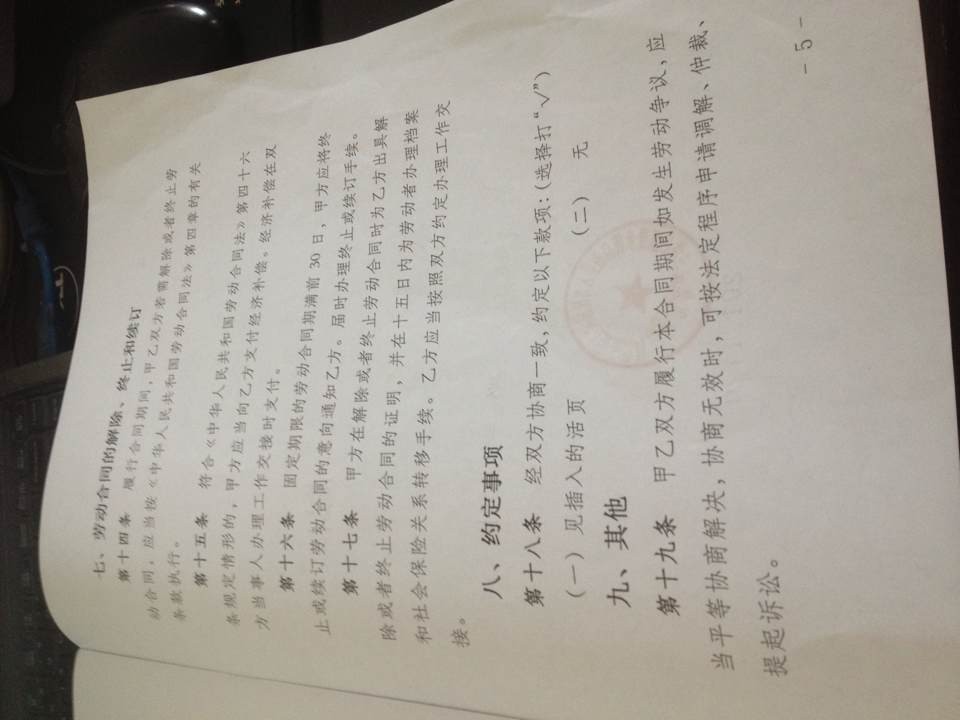 七、劳动合同的解除、终止和续订
第十四条 履行合同期间，甲乙双方若需解除或者终止劳
动合同，应当按《中华人民共和国劳动合同法》第四章的有关
条款执行。
第十五条 符合《中华人民共和国劳动合同法》第四十六
条规定情形的，甲方应当向乙方支付经济补偿。经济补偿在双
方当事人办理工作交接时支付。
第十六条 固定期限的劳动合同期满前30日，甲方应将终
止或续订劳动合同的意向通知乙方。届时办理终止或续订手续。
第十七条 甲方在解除或者终止劳动合同时为乙方出具解
除或者终止劳动合同的证明，并在十五日内为劳动者办理档案
和社会保险关系转移手续。乙方应当按照双方约定办理工作交
接。
八、约定事项
第十八条 经双方协商一致，约定以下款项：（选择打“√”）
（一）见插入的活页 （二） 无
九、其他
第十九条 甲乙双方履行本合同期间如发生劳动争议，应
当平等协商解决，协商无效时，可按法定程序申请调解、仲裁、
提起诉讼。
- 5 -